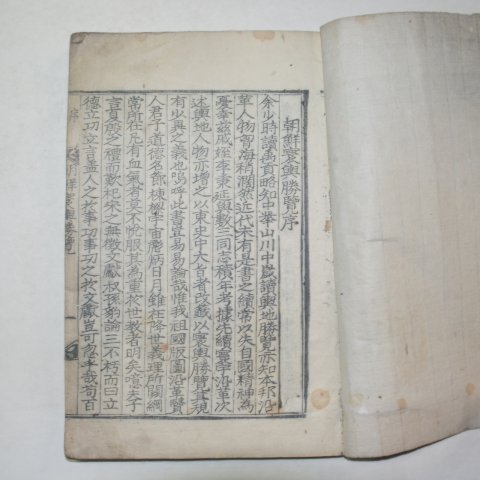 朝鮮寰輿勝覽序
余少時讀禹貢略知中華山川中歲讀輿地勝覽亦知本邦沿
革人物嘗海稍濶然近代未有是書之續常以失自國精神爲
憂李玆戒經李秉延與數三同志積年考據先續寰宇沿革次
述輿地人物亦增之以東史中大旨者改號以寰輿勝覽其規
有以異之義也嗚呼此書豈易易論哉惟我祖國版圖沿革賢
人君子道德名節棟樑學宙磨炳日月雖在降世義理所關綱
常所在凡有血氣者莫不悅服其爲重於世敎者明矣噫夫子
言夏殷之禮而歎杞宋之無徵文獻叔孫豹論三不朽而曰立
德立功立言盖人之於事功事功之於文獻豈可忽乎哉苟百
序
朝鮮寰輿勝覽
一